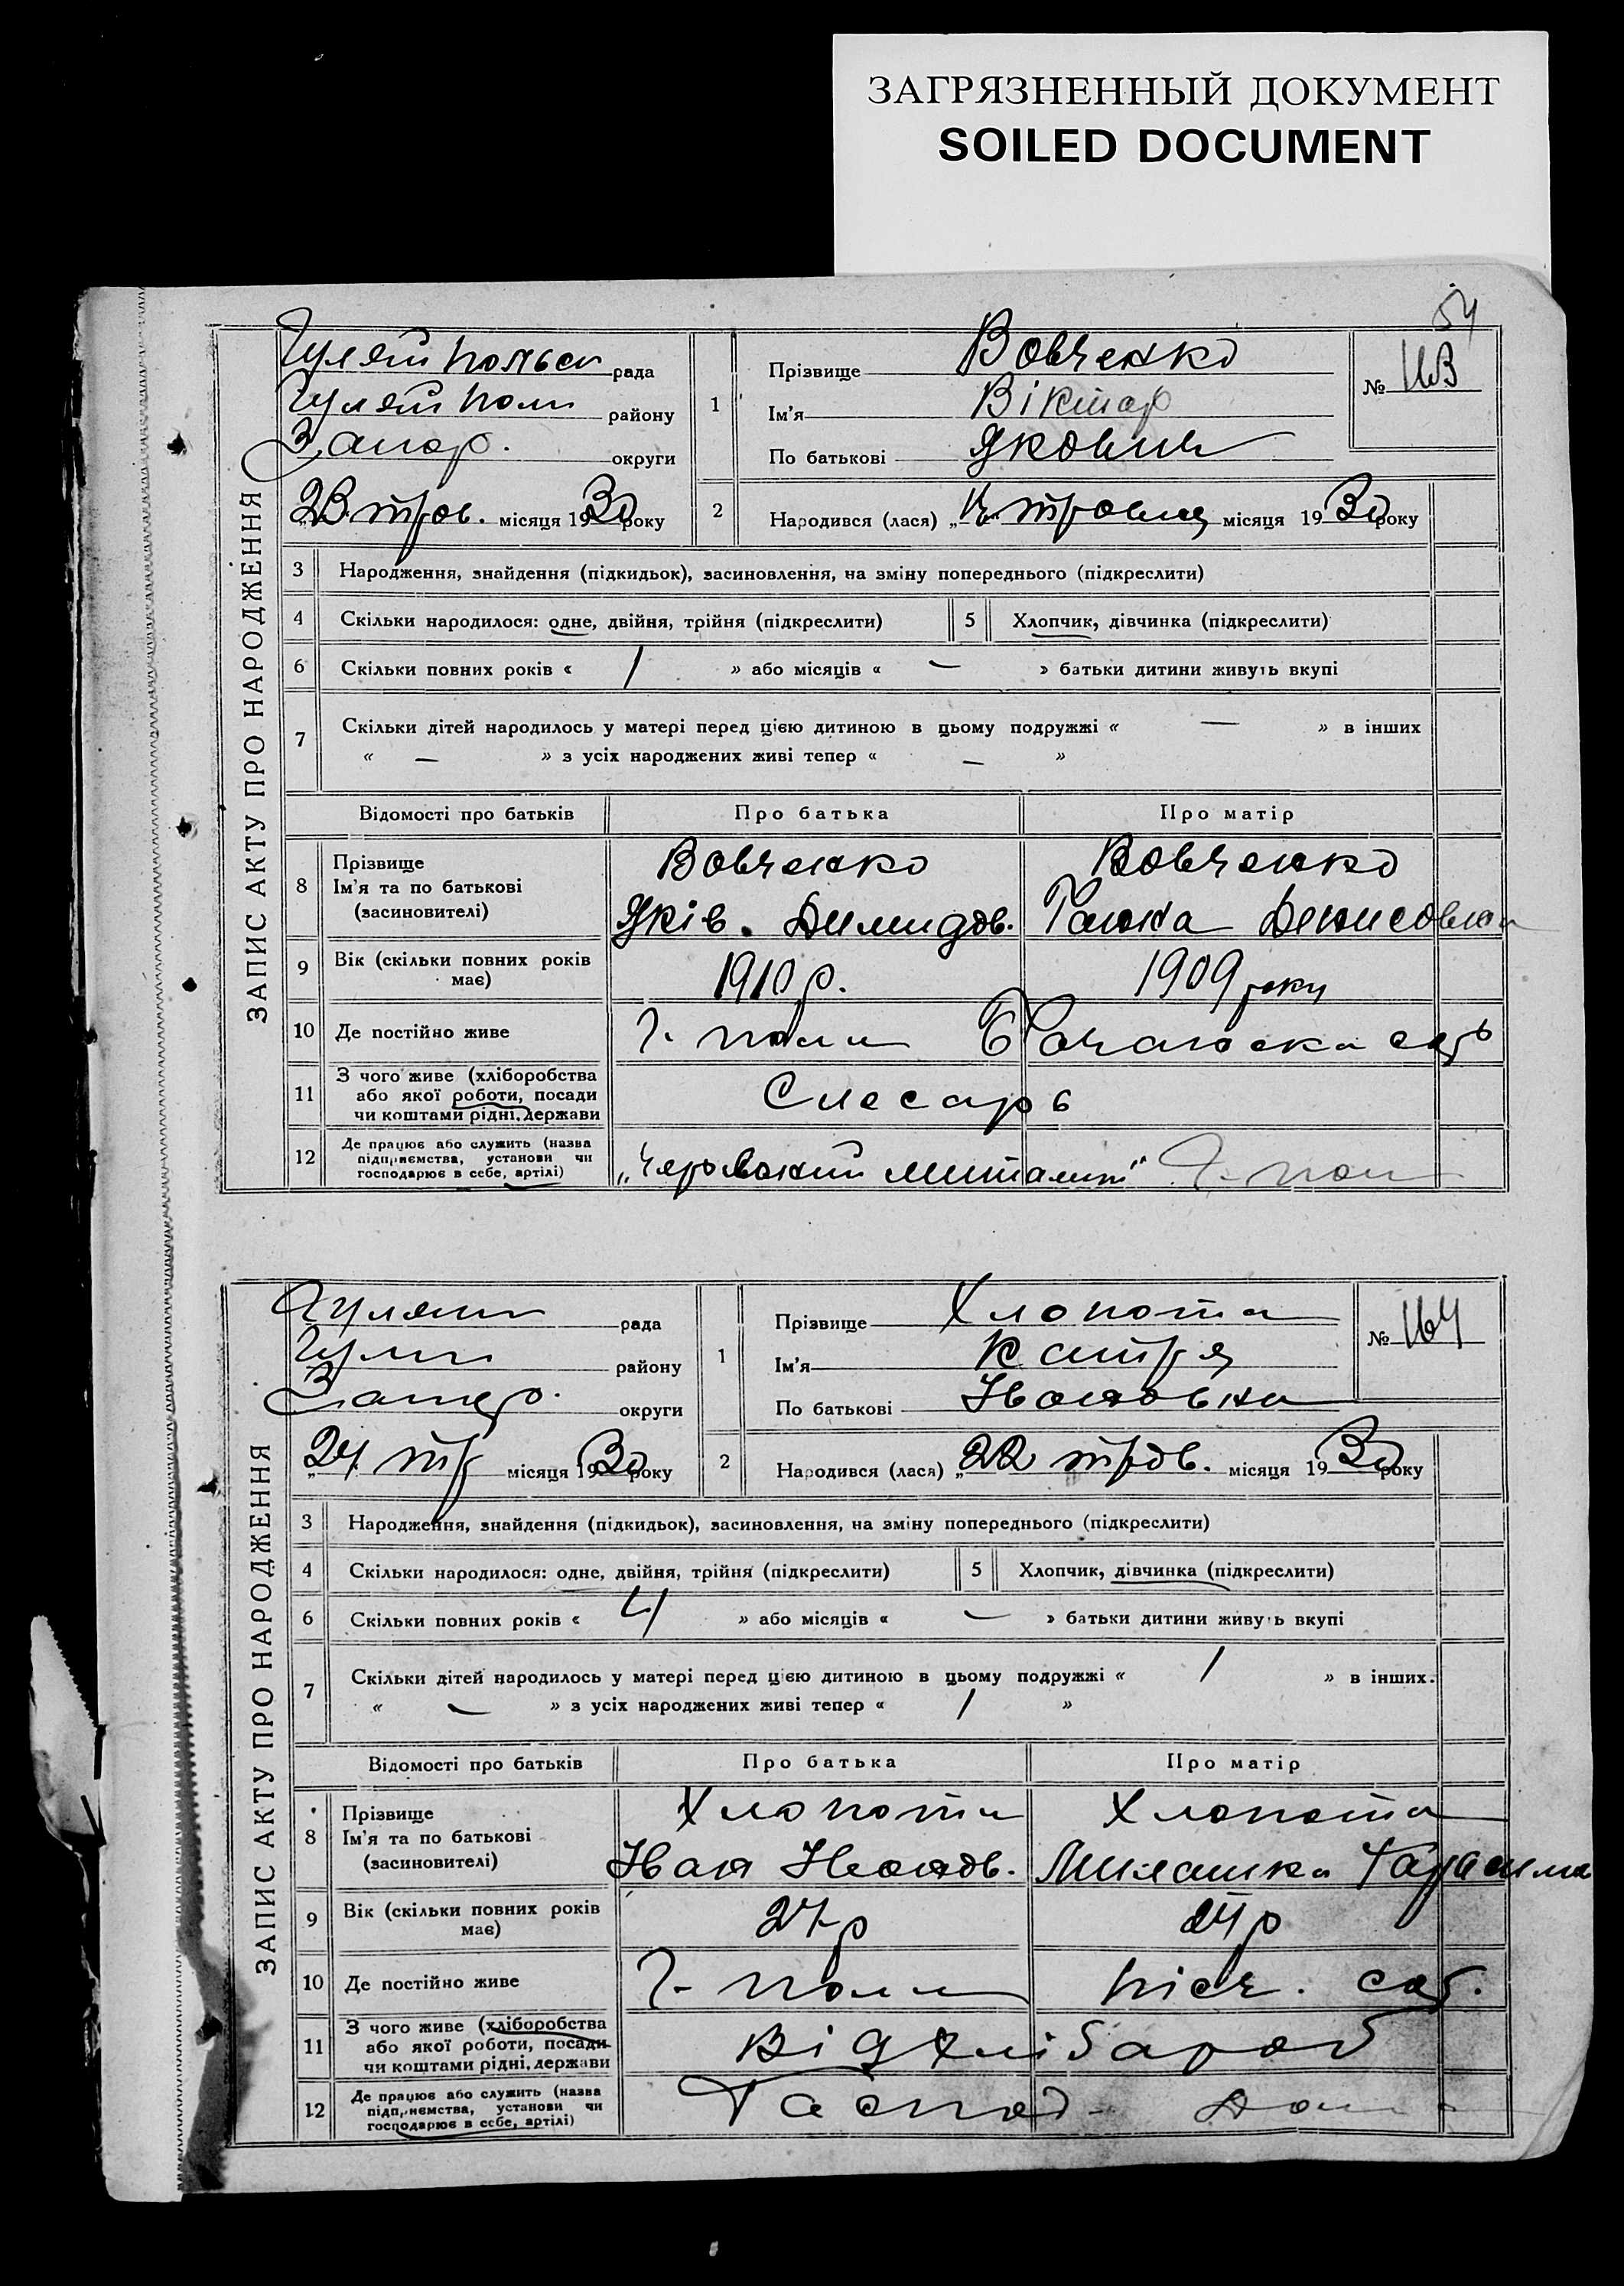 ЗАГРЯЗНЕННЫЙ ДОКУМЕНТ
SOILED DOCUMENT
54
ЗАПИС АКТУ ПРО НАРОДЖЕННЯ
Гуляйпольск рада
Гуляйполя району
Запор. округи
„23“ трав. місяця 1930 року
1 Прізвище Вовченко
Ім'я Віктор
По батькові Якович
№ 163
2 Народився (лася) травня місяця 1930 року
3 Народження, знайдення (підкидьок), засиновлення, на зміну попереднього (підкреслити)
4 Скільки народилося: одне, двійня, трійня (підкреслити) 5 Хлопчик, дівчинка (підкреслити)
6 Скільки повних років « 1 » або місяців « — » батьки дитини живуть вкупі
7 Скільки дітей народилось у матері перед цією дитиною в цьому подружжі « — » в інших
« — » з усіх народжених живі тепер « — »
Відомості про батьків Про батька Про матір
8 Прізвище Вовченко Вовченко
Ім'я та по батькові (засиновителі) Яків. Димидов. Ганна Денисовна
9 Вік (скільки повних років має) 1910 р. 1909 року
10 Де постійно живе Г-поля
11 З чого живе (хліборобства або якої роботи, посади чи коштами рідні, держави Слесарь
12 Де працює або служить (назва підприємства, установи чи господарює в себе, артілі) Г-пол
ЗАПИС АКТУ ПРО НАРОДЖЕННЯ
рада
району
Запор. округи
„24 тр місяця 1930 року
1 Прізвище Хлопота
Ім'я Катря
По батькові Івановна
№ 164
2 Народився (лася) „22 трав. місяця 1930 року
3 Народження, знайдення (підкидьок), засиновлення, на зміну попереднього (підкреслити)
4 Скільки народилося: одне, двійня, трійня (підкреслити) 5 Хлопчик, дівчинка (підкреслити)
6 Скільки повних років « 4 » або місяців « — » батьки дитини живуть вкупі
7 Скільки дітей народилось у матері перед цією дитиною в цьому подружжі « 1 » в інших.
« — » з усіх народжених живі тепер « 1 »
Відомості про батьків Про батька Про матір
8 Прізвище Хлопота Хлопота
Ім'я та по батькові (засиновителі) Іван Іванов. Милашка
9 Вік (скільки повних років має) 27 р 24 р
10 Де постійно живе Г-поля піск.
11 З чого живе (хліборобства або якої роботи, посади чи коштами рідні, держави Від хлібароб
12 Де працює або служить (назва підприємства, установи чи господарює в себе, артілі) Гаспод